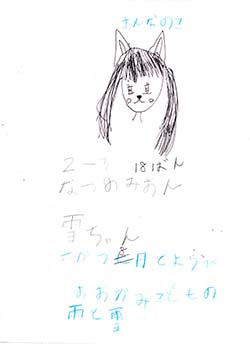 おんなの子
2-3 18ばん
なつめみあん
雪ちゃん
がつ 月とようび
おおかみこどもの
雨と雪